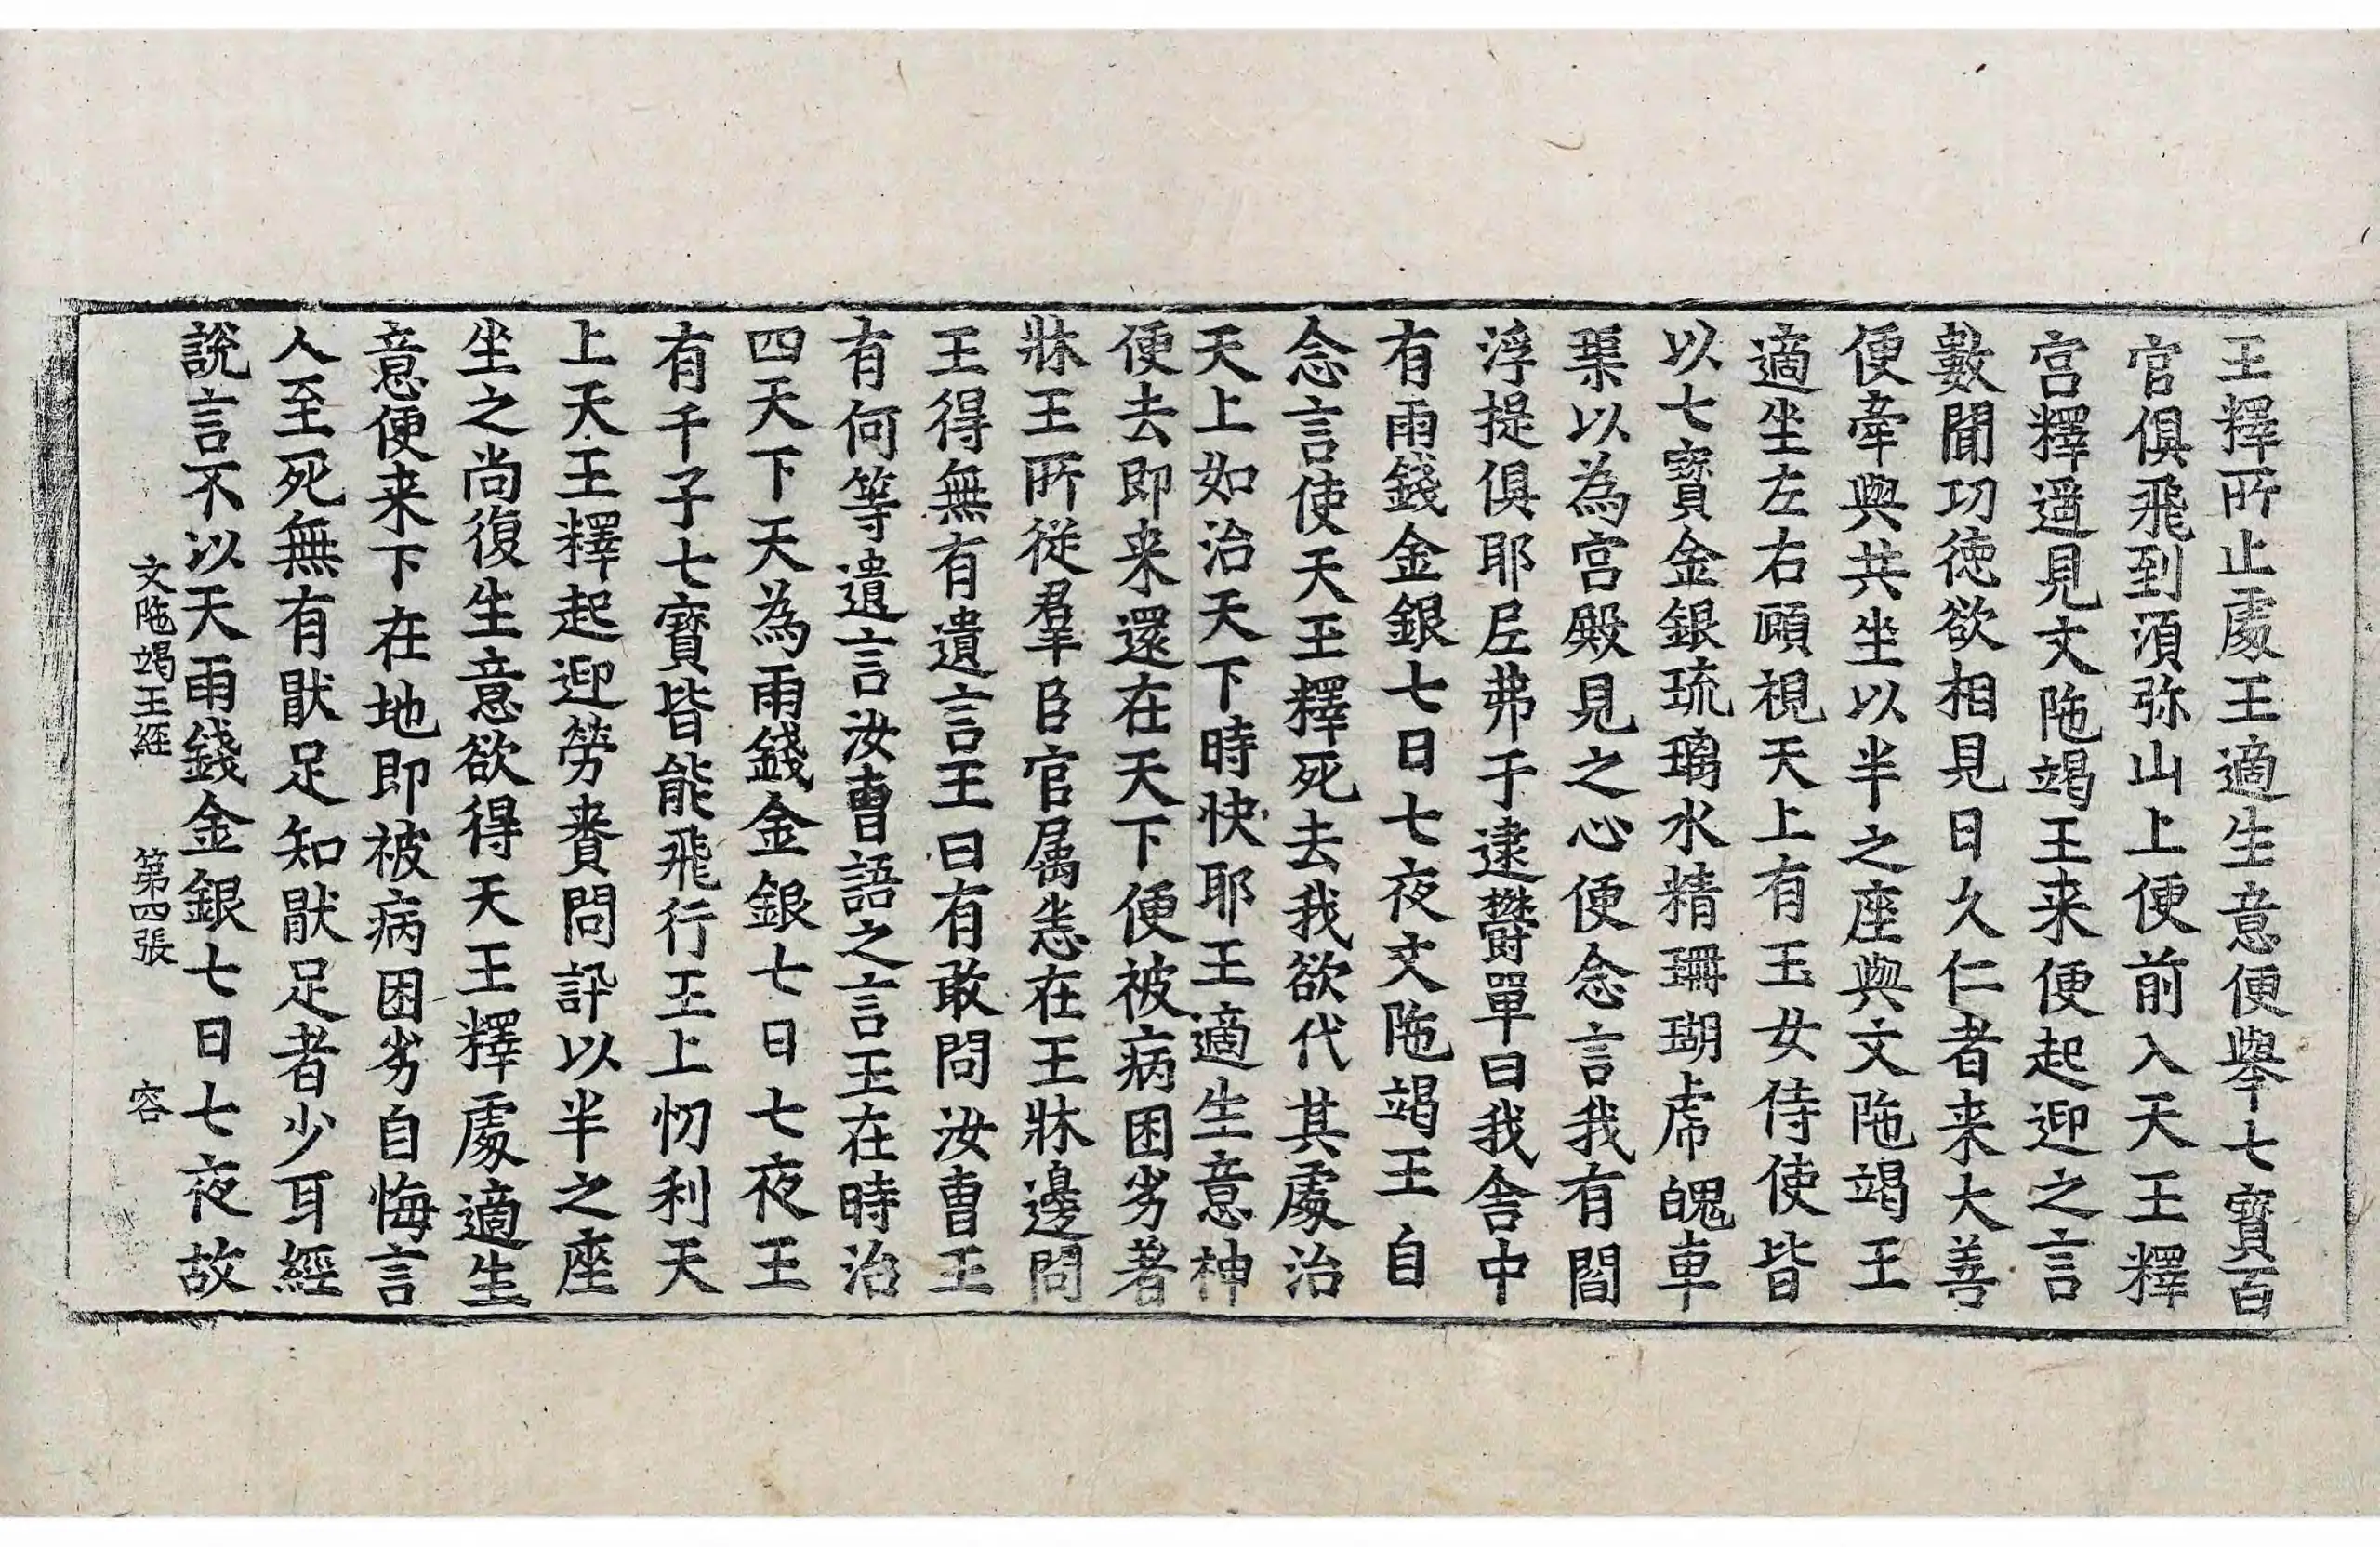 王釋所止處王適生意便舉七寶百
官俱飛到湏弥山上便前入天王釋
宮釋遥見文陁竭王来便起迎之言
數聞功徳欲相見日久仁者来大善
便牽與共坐以半之座與文陁竭王
適坐左右顧視天上有玉女侍使皆
以七寶金銀琉璃水精珊瑚虎魄車
渠以為宮殿見之心便念言我有閻
浮提俱耶尼弗于逮欝單曰我舍中
有雨錢金銀七日七夜文陁竭王自
念言使天王釋死去我欲代其處治
天上如治天下時快耶王適生意神
便去即来還在天下便被病困劣著
牀王所從羣臣官属恙在王牀邊問
王得無有遺言王曰有敢問汝曹王
有何等遺言汝曹語之言王在時治
四天下天為雨錢金銀七日七夜王
有千子七寶皆能飛行王上忉利天
上天王釋起迎勞賚問訊以半之座
坐之尚復生意欲得天王釋處適生
意便来下在地即被病困劣自悔言
人至死無有猒足知猒足者少耳經
說言不以天雨錢金銀七日七夜故
文陁竭王經 第四張 容